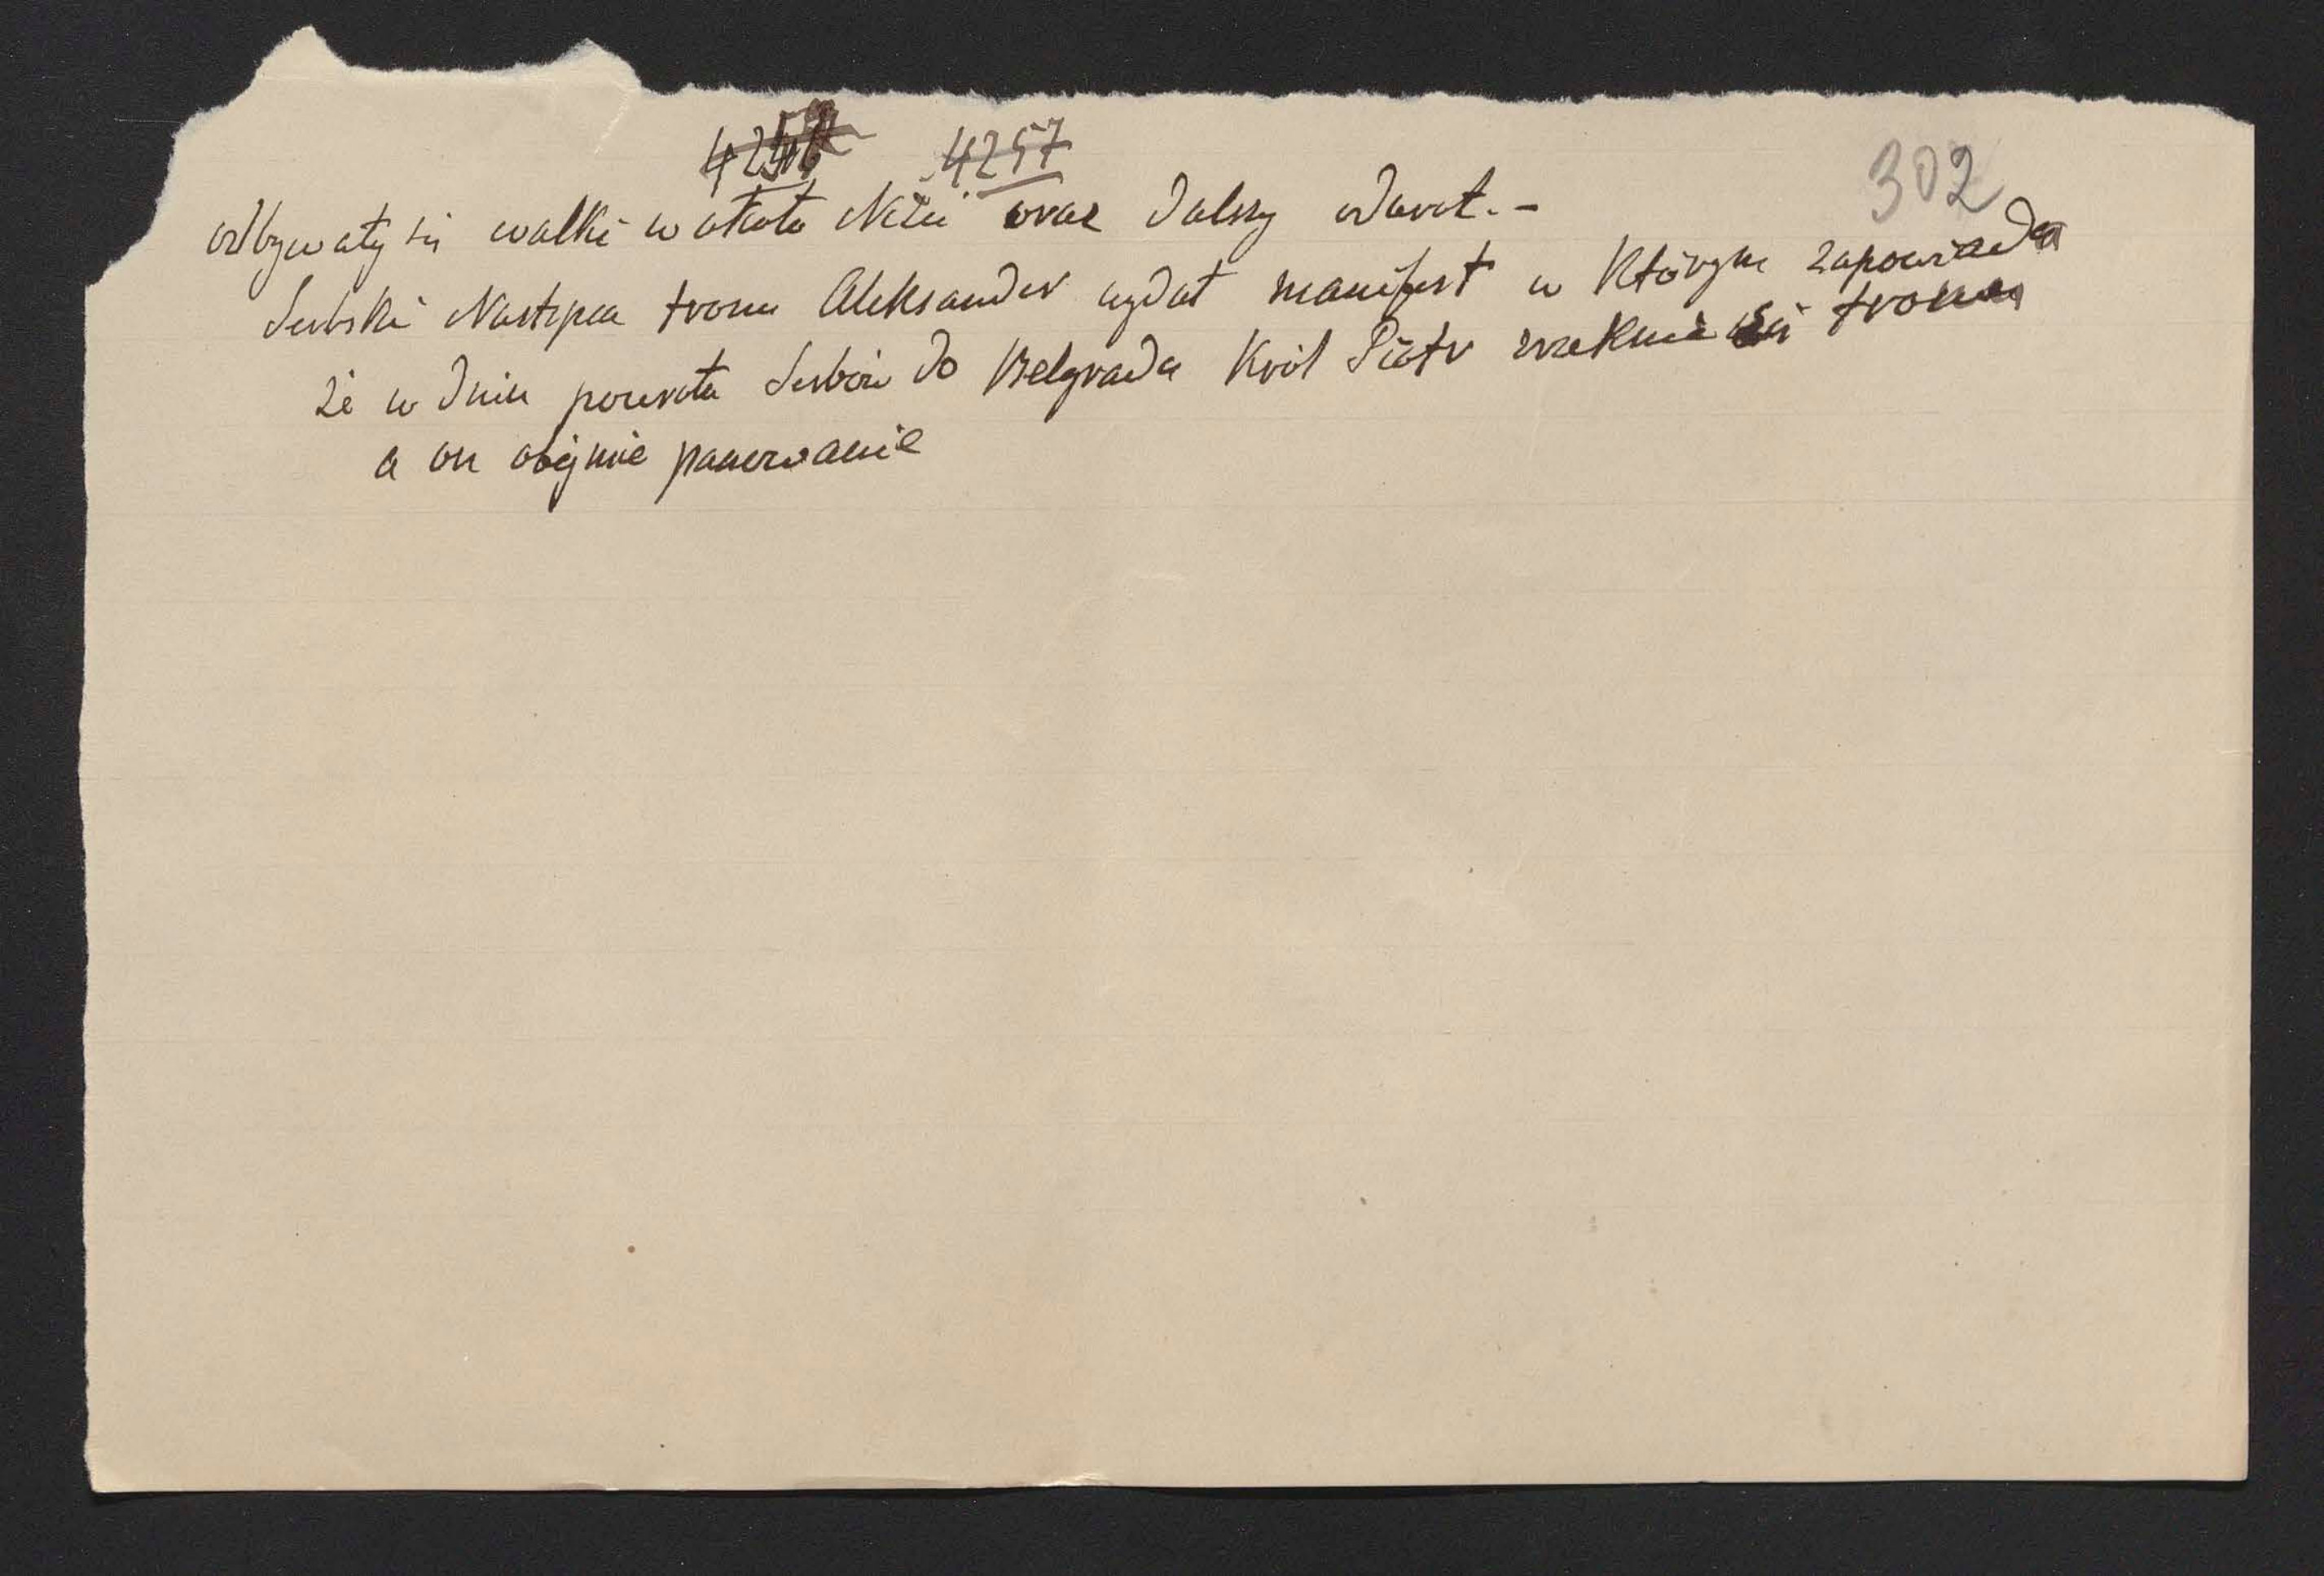 4257
302
odbywały się walki w około Niżu oraz dalszy odwrót. -
Serbski Następca tronu Aleksander wydał manifest w którym zapowiada
że w dniu powrotu Serbów do Belgradu Król Piotr zrzeknie się tronu
a on obejmie panowanie